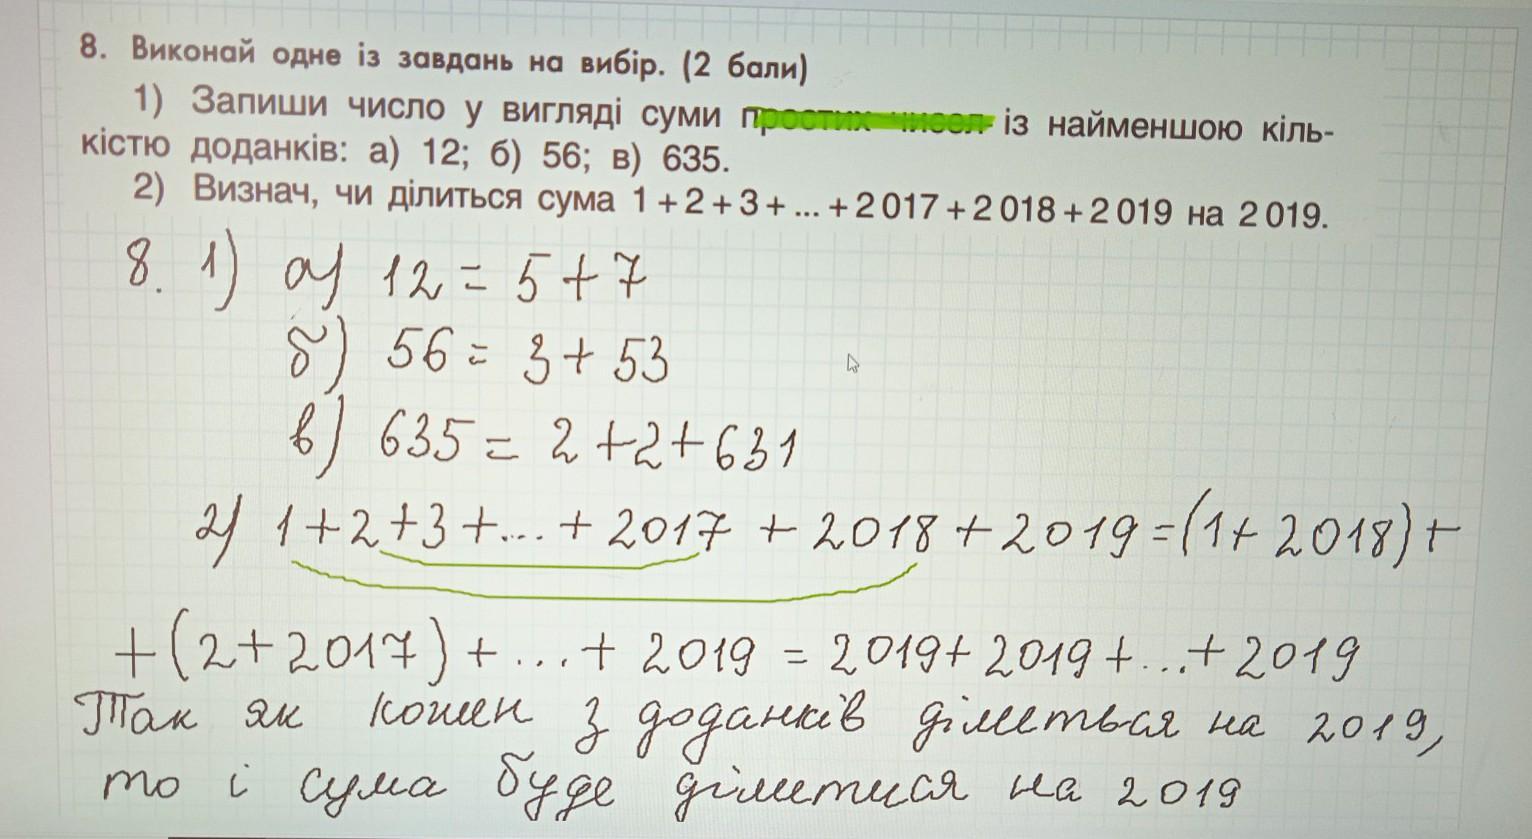 8. Виконай одне із завдань на вибір. (2 бали)
1) Запиши число у вигляді суми простих чисел із найменшою кіль-
кістю доданків: а) 12; б) 56; в) 635.
2) Визнач, чи ділиться сума 1 + 2 + 3 + ... + 2 017 + 2 018 + 2 019 на 2 019.
8. 1) а) 12 = 5 + 7
б) 56 = 3 + 53
в) 635 = 2 + 2 + 631
2) 1 + 2 + 3 + ... + 2017 + 2018 + 2019 = (1 + 2018) +
+ (2 + 2017) + ... + 2019 = 2019 + 2019 + ... + 2019
Так як кожен з доданків ділиться на 2019,
то і сума буде ділитися на 2019